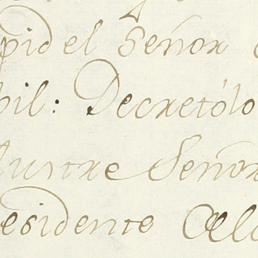 pid el Señor
bil: Decretólo
lustre Señor
esidente